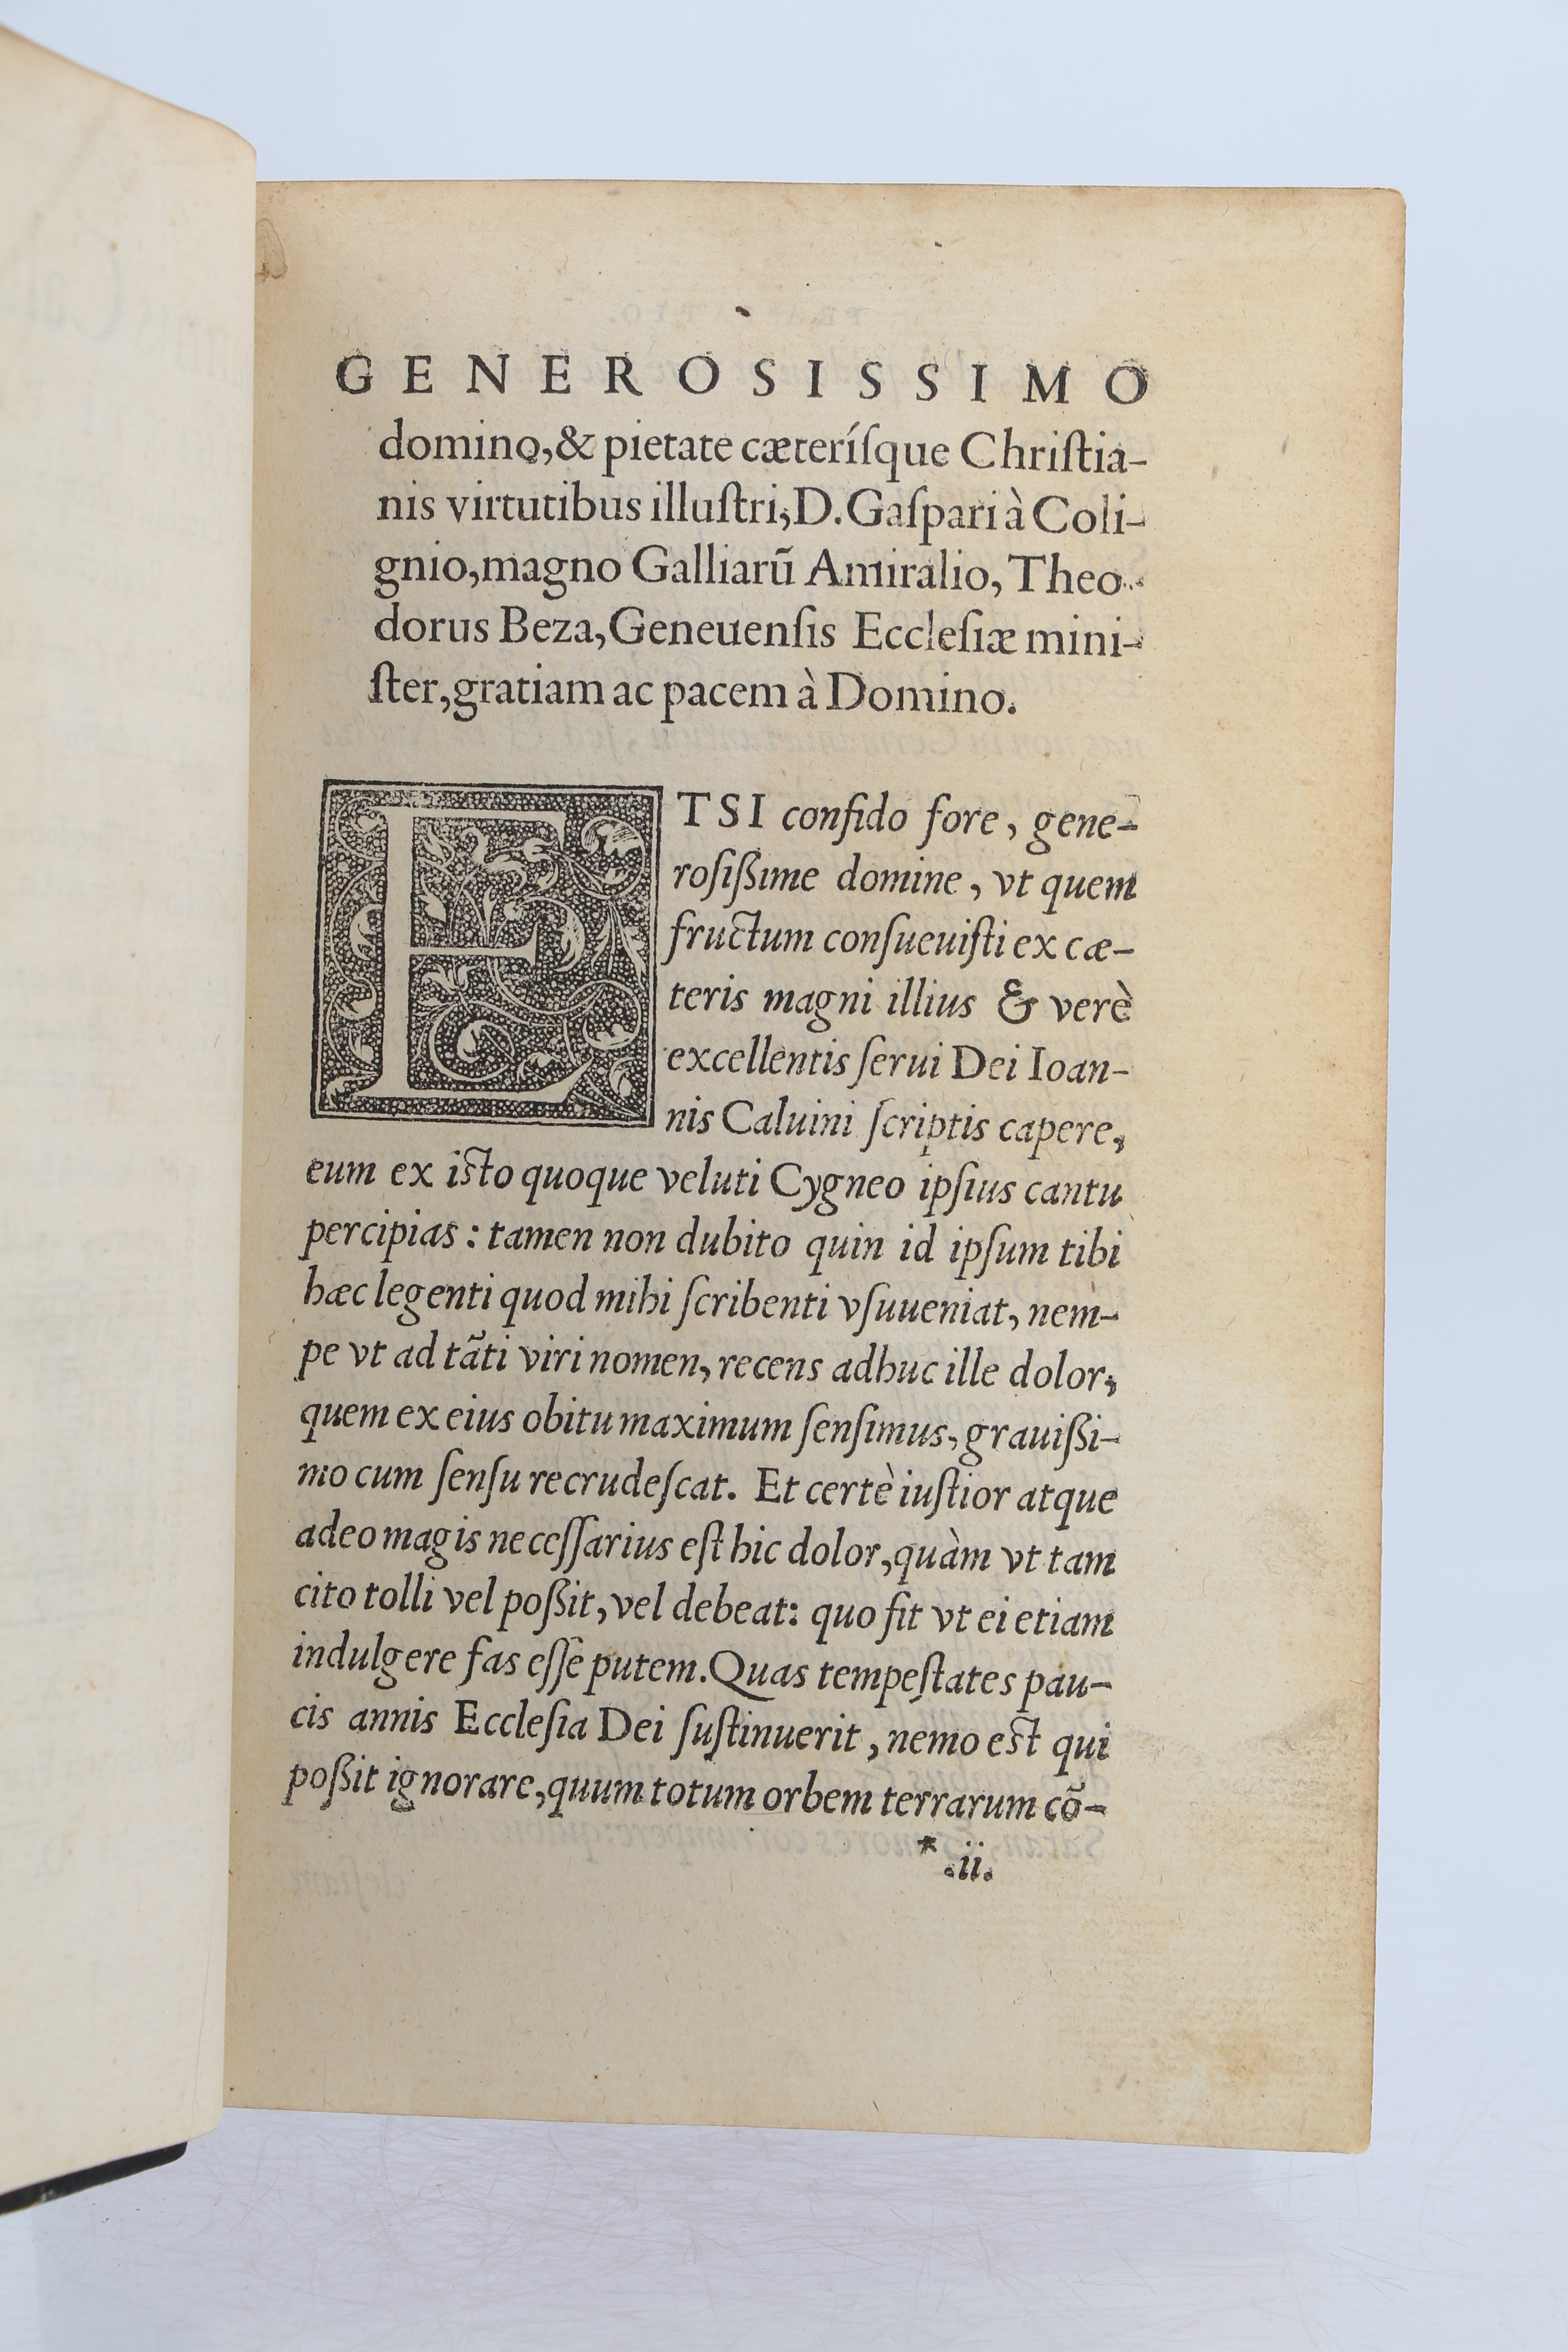 GENEROSISSIMO
domino,& pietate cæteríſque Chriſtia-
nis virtutibus illuſtri, D. Gaſpari à Coli-
gnio, magno Galliarū Amiralio, Theo-
dorus Beza, Geneuenſis Eccleſiæ mini-
ſter, gratiam ac pacem à Domino.
ETSI confido fore, gene-
roſißime domine, vt quem
fructum conſueuiſti ex cæ-
teris magni illius & verè
excellentis ſerui Dei Ioan-
nis Caluini ſcriptis capere,
eum ex isto quoque veluti Cygneo ipſius cantu
percipias: tamen non dubito quin id ipſum tibi
hæc legenti quod mihi ſcribenti vſuueniat, nem-
pe vt ad tāti viri nomen, recens adhuc ille dolor,
quem ex eius obitu maximum ſenſimus, grauißi-
mo cum ſenſu recrudeſcat. Et certè iuſtior atque
adeo magis neceſſarius eſt hic dolor, quàm vt tam
cito tolli vel poßit, vel debeat: quo fit vt ei etiam
indulgere fas eſſe putem. Quas tempeſtates pau-
cis annis Eccleſia Dei ſuſtinuerit, nemo est qui
poßit ignorare, quum totum orbem terrarum cō-
*.ii.